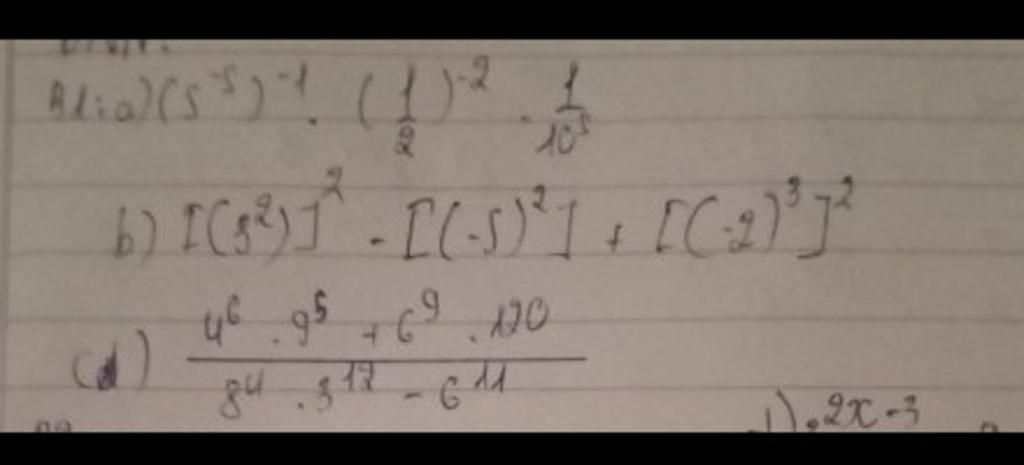 A1: a) (5^-5)^-1 . (1/2)^-2 . 1/10^5
b) [(3^2)]^2 - [(-5)^2] + [(-2)^3]^2
(d) (4^6 . 9^5 + 6^9 . 120)/(8^4 . 3^12 - 6^11)
2x-3